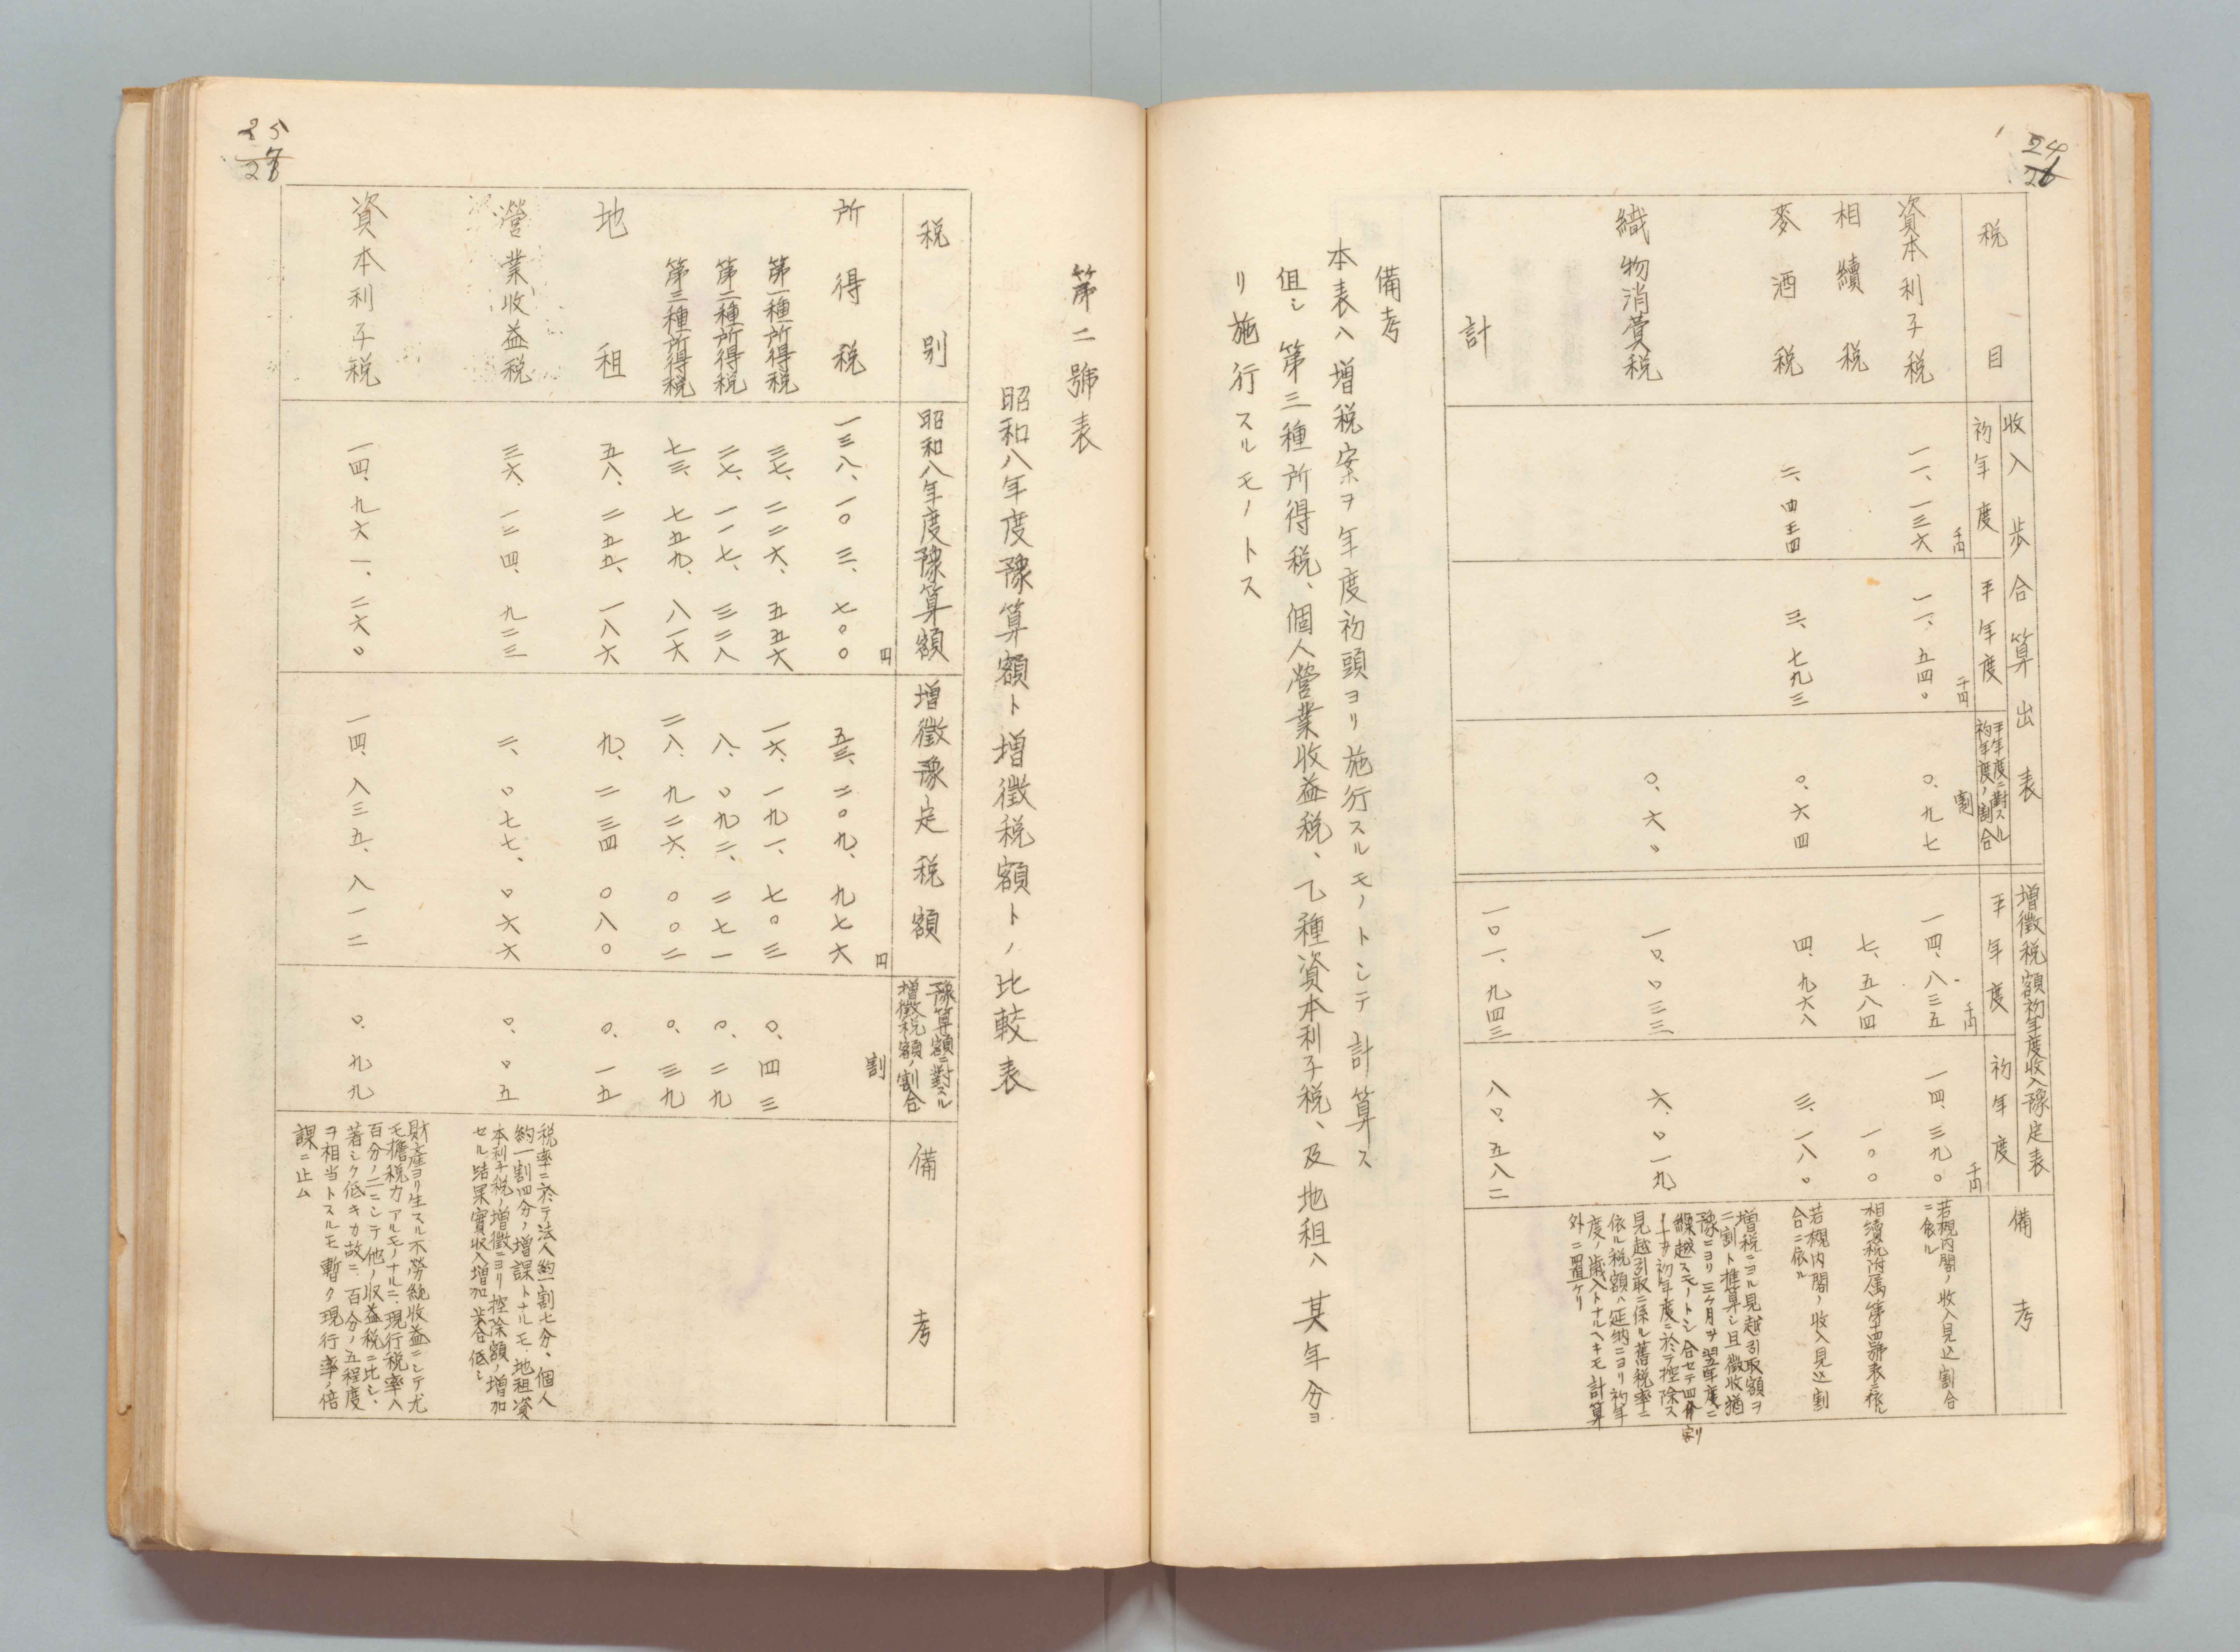 24
26
税目
收入歩合算出表
初年度
平年度
平年度ニ對スル
初年度ノ割合
增徴税額初年度收入豫定表
平年度
初年度
備考
資本利子税
一一、一三六
千円
一一、五四〇
千円
〇、九七
割
一四、八三五
千円
一四、三九〇
千円
若槻内閣ノ收入見込割合
ニ依ル
相續税
七、五八四
一〇〇
相續税附属第四號表ニ依ル
麥酒税
二、四三四
三、七九三
〇、六四
四、九六八
三、一八〇
若槻内閣ノ收入見込割
合ニ依ル
織物消費税
〇、六〇
一〇、〇三三
六、〇一九
增税ニヨル見越引取額ヲ
二割ト推算シ且徴收猶
豫ニヨリ三ケ月ヲ翌年度ニ
繰越スモノトシ合セテ四割
ヲ初年度ニ於テ控除ス
見越引取ニ係ル舊税率ニ
依ル税額ハ延納ニヨリ初年
度ノ歳入トナルヘキモ計算
外ニ置ケリ
計
一〇一、九四三
八〇、五八二
備考
本表ハ增税案ヲ年度初頭ヨリ施行スルモノトシテ計算ス
但シ第三種所得税、個人營業收益税、乙種資本利子税、及地租ハ其年分ヨ
リ施行スルモノトス
25
第二號表
昭和八年度豫算額ト增徴税額トノ比較表
税別
昭和八年度豫算額
增徴豫定税額
豫算額ニ對スル
增徴税額ノ割合
備考
所得税
一三八、一〇三、七〇〇
円
五三、二〇九、九七六
円
割
第一種所得税
三七、二二六、五五六
一六、一九一、七〇三
〇、四三
第二種所得税
二七、一一七、三二八
八、〇九二、二七一
〇、二九
第三種所得税
七三、七五九、八一六
二八、九二六、〇〇二
〇、三九
地租
五八、二五五、一八六
九、二三四、〇八〇
〇、一五
營業收益税
三六、一二四、九二三
二、〇七七、〇六六
〇、〇五
税率ニ於テ法人約一割七分、個人
約一割四分ノ增課トナルモ、地租資
本利子税ノ增徴ニヨリ控除額ノ增加
セル結果實收入增加歩合低シ
資本利子税
一四、九六一、二六〇
一四、八三五、八一二
〇、九九
財產ヨリ生スル不勞純收益ニシテ尤
モ擔税力アルモノナルニ、現行税率ハ
百分ノ二ニシテ他ノ收益税ニ比シ、
著シク低キカ故ニ、百分ノ五程度
ヲ相当トスルモ暫ク現行率ノ倍
課ニ止ム